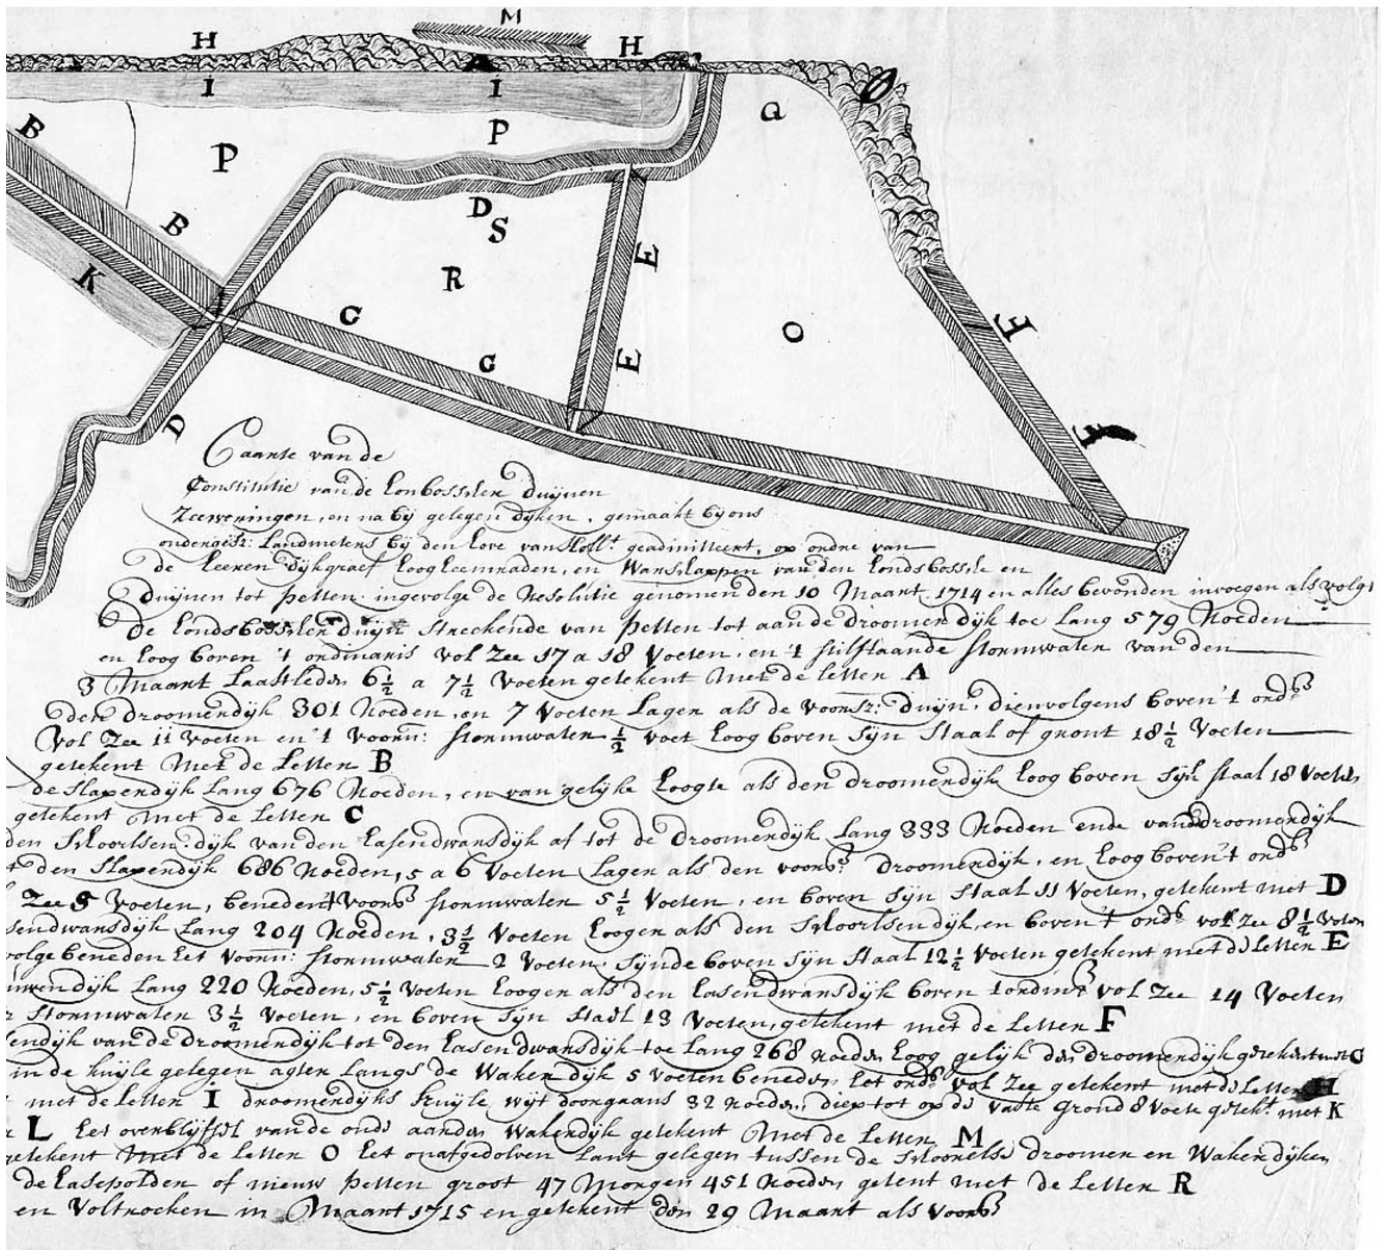 M
H H
I I
G
B P P
B D S
K R E
G O F
G E
F
D
Caarte van de
Constitutie van de honbossche duijnen
Zeeweringen, en na bij gelegen dijken, gemaakt bij ons
ondergesz: Landmeters bij den hove van Holl.t geadmitteert, op ordre van
de heeren Dijkgraef hoog heemraden, en Wanschappen van den hondsbossche en
Duijnen tot petten ingevolge de Resolutie genomen den 10 Maart 1714 en alles bevonden invoegen als volgt
De hondsbosschen duijn streckende van petten tot aan de droomendijk toe lang 579 Roeden
en hoog boven 't ordinaris vol Zee 17 a 18 Voeten, en 't stilstaande stormwater van den
3 Maart Laastleden 6½ a 7½ Voeten getekent Met de letter A
den droomendijk 301 Roeden, en 7 Voeten Lager als de voorsz: duijn, dienvolgens boven 't ord.s
Vol Zee 11 Voeten en 't voorn: stormwater ½ voet hoog boven sijn Staal of gront 18½ Voeten
getekent Met de Letter B
de Slapendijk Lang 676 Roeden, en van gelijke hoogte als den droomendijk hoog boven sijn staal 18 Voeten
getekent Met de Letter C
den Schoorlsen dijk van den hasendwarsdijk af tot de droomendijk Lang 333 Roeden ende van droomendijk
t den Slapendijk 686 Roeden, 5 a 6 Voeten Lager als den voors droomendijk, en hoog boven 't ord.s
Zee 5 Voeten, beneden 't voors stormwater 5½ Voeten, en boven sijn Staal 11 Voeten, getekent met D
sendwarsdijk Lang 204 Roeden, 3½ Voeten hooger als den Schoorlsendijk, en boven 't ord.s vol Zee 8½ Voeten
volge beneden het voorn: stormwater 2 Voeten. sijnde boven sijn staal 12½ Voeten getekent met de Letter E
endijk Lang 220 Roeden, 5½ Voeten hooger als den hasendwarsdijk boven 't ordin.s vol Zee 14 Voeten
stormwater 3½ Voeten, en boven sijn staal 13 Voeten, getekent met de Letter F
endijk van de droomendijk tot den hasendwarsdijk toe Lang 268 Roeden hoog gelijk den droomendijk getekent met G
in de kuijle gelegen agter Langs de Wakendijk 5 Voeten beneden het ord.s vol Zee getekent met de Letter H
met de Letter I droomendijks kuijle wijt doorgaans 32 Roeden, diep tot op de vaste grond 8 Voete getek.t met K
L het overblijfsel van de oude aarden Wakendijk getekent Met de Letter M
getekent Met de Letter O het onafgedolven Lant gelegen tussen de Schoorelse droomer en Wakerdijken
de hasepolder of nieuw petten groot 47 Morgen 451 Roeden getent met de Letter R
en Voltrocken in Maart 1715 en getekent den 29 Maart als voors